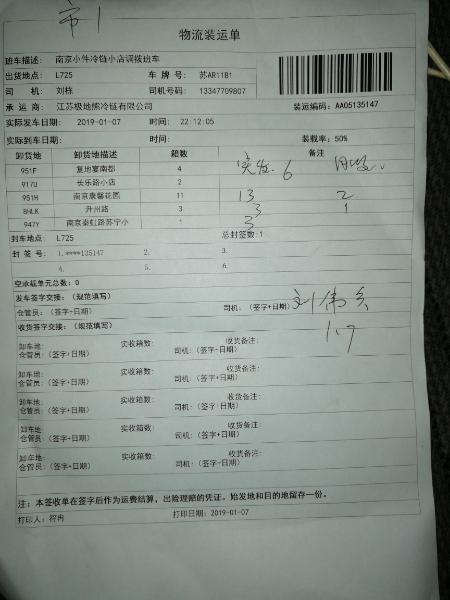 市1
物流装运单
班车描述： 南京小件冷链小店调拨班车
出货地点： L725 车 牌 号： 苏AR11B1
司 机： 刘栋 司机号码： 13347709807
承 运 商： 江苏极地熊冷链有限公司 装运编码： AA05135147
实际发车日期： 2019-01-07 时间： 22:12:05
实际到车日期： 时间： 装载率： 50%
卸货地 卸货地描述 箱数 备注
951F 复地宴南都 4 实收 6
917U 长乐路小店 2
951H 南京康馨花园 11 13 2
8NLK 升州路 3 3 1
947Y 南京秦虹路苏宁小 3
封车地点： L725 总封签数：1
封 签 号： 1.****135147 2. 3.
4. 5. 6.
空承载单元总数： 0
发车签字交接：（规范填写）
仓管员：（签字+日期） 司机：（签字+日期）
1.7
收货签字交接：（规范填写）
卸车地: 实收箱数: 收货备注:
仓管员：（签字+日期） 司机：（签字+日期）
卸车地: 实收箱数: 收货备注:
仓管员：（签字+日期） 司机：（签字+日期）
卸车地: 实收箱数: 收货备注:
仓管员：（签字+日期） 司机：（签字+日期）
卸车地: 实收箱数: 收货备注:
仓管员：（签字+日期） 司机：（签字+日期）
卸车地: 实收箱数: 收货备注:
仓管员：（签字+日期） 司机：（签字+日期）
注：本签收单在签字后作为运费结算，出险理赔的凭证。始发地和目的地留存一份。
打印人：符冉 打印日期：2019-01-07